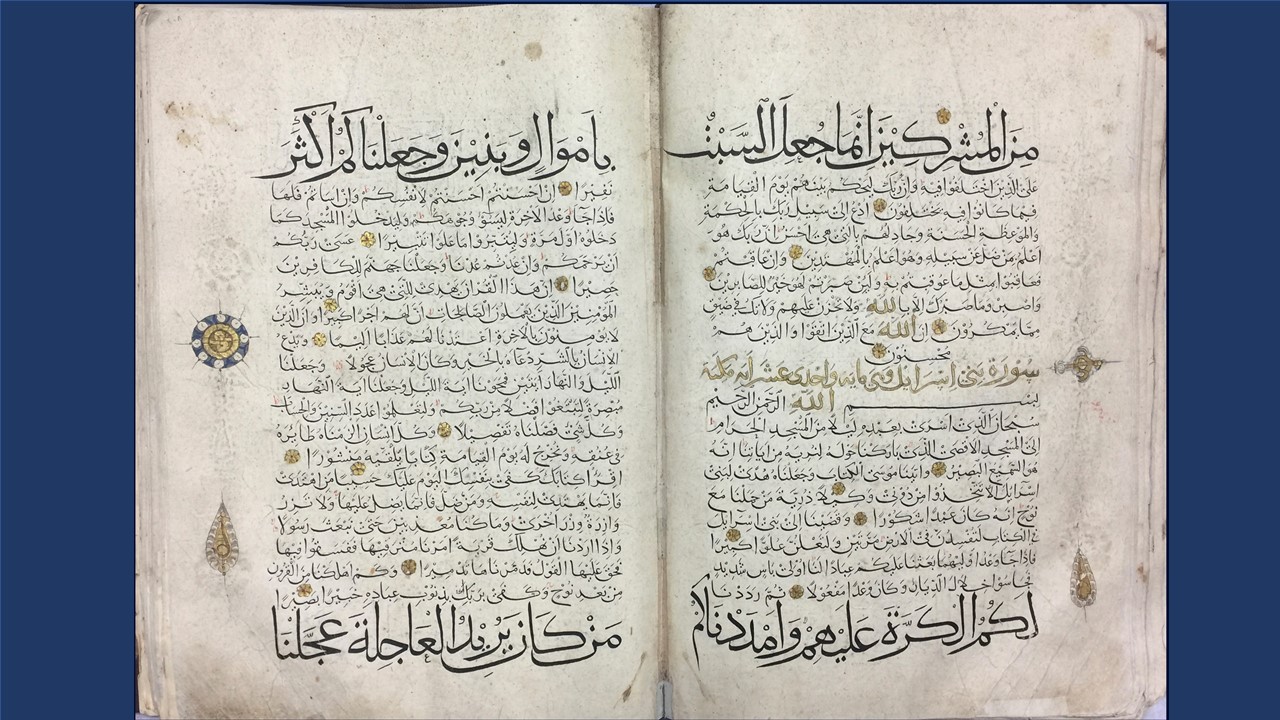 من المشركين انما جعل السبت
على الذين اختلفوا فيه وان ربك ليحكم بينهم يوم القيامة
فيما كانوا فيه يختلفون ادع الى سبيل ربك بالحكمة
والموعظة الحسنة وجادلهم بالتي هي احسن ان ربك هو
اعلم بمن ضل عن سبيله وهو اعلم بالمهتدين وان عاقبتم
فعاقبوا بمثل ما عوقبتم به ولئن صبرتم لهو خير للصابرين
واصبر وما صبرك الا بالله ولا تحزن عليهم ولا تك في ضيق
مما يمكرون ان الله مع الذين اتقوا والذين هم
محسنون
سورة بني اسرايل وهي مايه واحدى عشر ايه مكية
بسم الله الرحمن الرحيم
سبحان الذي اسرى بعبده ليلا من المسجد الحرام
الى المسجد الاقصى الذي باركنا حوله لنريه من اياتنا انه
هو السميع البصير واتينا موسى الكتاب وجعلناه هدى لبني
اسرائل الا تتخذوا من دوني وكيلا ذرية من حملنا مع
نوح انه كان عبدا شكورا وقضينا الى بني اسرائل
في الكتاب لتفسدن في الارض مرتين ولتعلن علوا كبيرا
فاذا جا وعد اوليهما بعثنا عليكم عبادا لنا اولى باس شديد
فجاسوا خلال الديار وكان وعدا مفعولا ثم رددنا
لكم الكرة عليهم وامددناكم
باموال وبنين وجعلناكم اكثر
نفيرا ان احسنتم احسنتم لانفسكم وان اساتم فلها
فاذا جا وعد الاخرة ليسؤا وجوهكم وليدخلوا المسجد كما
دخلوه اول مرة وليتبروا ما علوا تتبيرا عسى ربكم
ان يرحمكم وان عدتم عدنا وجعلنا جهنم للكافرين
حصيرا ان هذا القران يهدى للتي هي اقوم ويبشر
المؤمنين الذين يعملون الصالحات ان لهم اجرا كبيرا وان الذين
لا يؤمنون بالاخرة اعتدنا لهم عذابا اليما ويدع
الانسان بالشر دعاه بالخير وكان الانسان عجولا وجعلنا
الليل والنهار ايتين فمحونا اية الليل وجعلنا اية النهار
مبصرة لتبتغوا فضلا من ربكم ولتعلموا عدد السنين والحساب
وكل شئ فصلناه تفصيلا وكل انسان الزمناه طائره
في عنقه ونخرج له يوم القيامة كتابا يلقيه منشورا
اقرا كتابك كفى بنفسك اليوم عليك حسيبا من اهتدى
فانما يهتدى لنفسه ومن ضل فانما يضل عليها ولا تزر
وازرة وزر اخرى وما كنا معذبين حتى نبعث رسولا
واذا اردنا ان نهلك قرية امرنا مترفيها ففسقوا فيها
فحق عليها القول فدمرناها تدميرا وكم اهلكنا من القرون
من بعد نوح وكفى بربك بذنوب عباده خبيرا بصيرا
من كان يريد العاجلة عجلنا